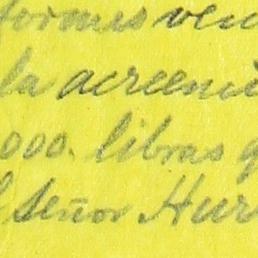 formes ven
la acreenci
000. libras q
l señor Hur